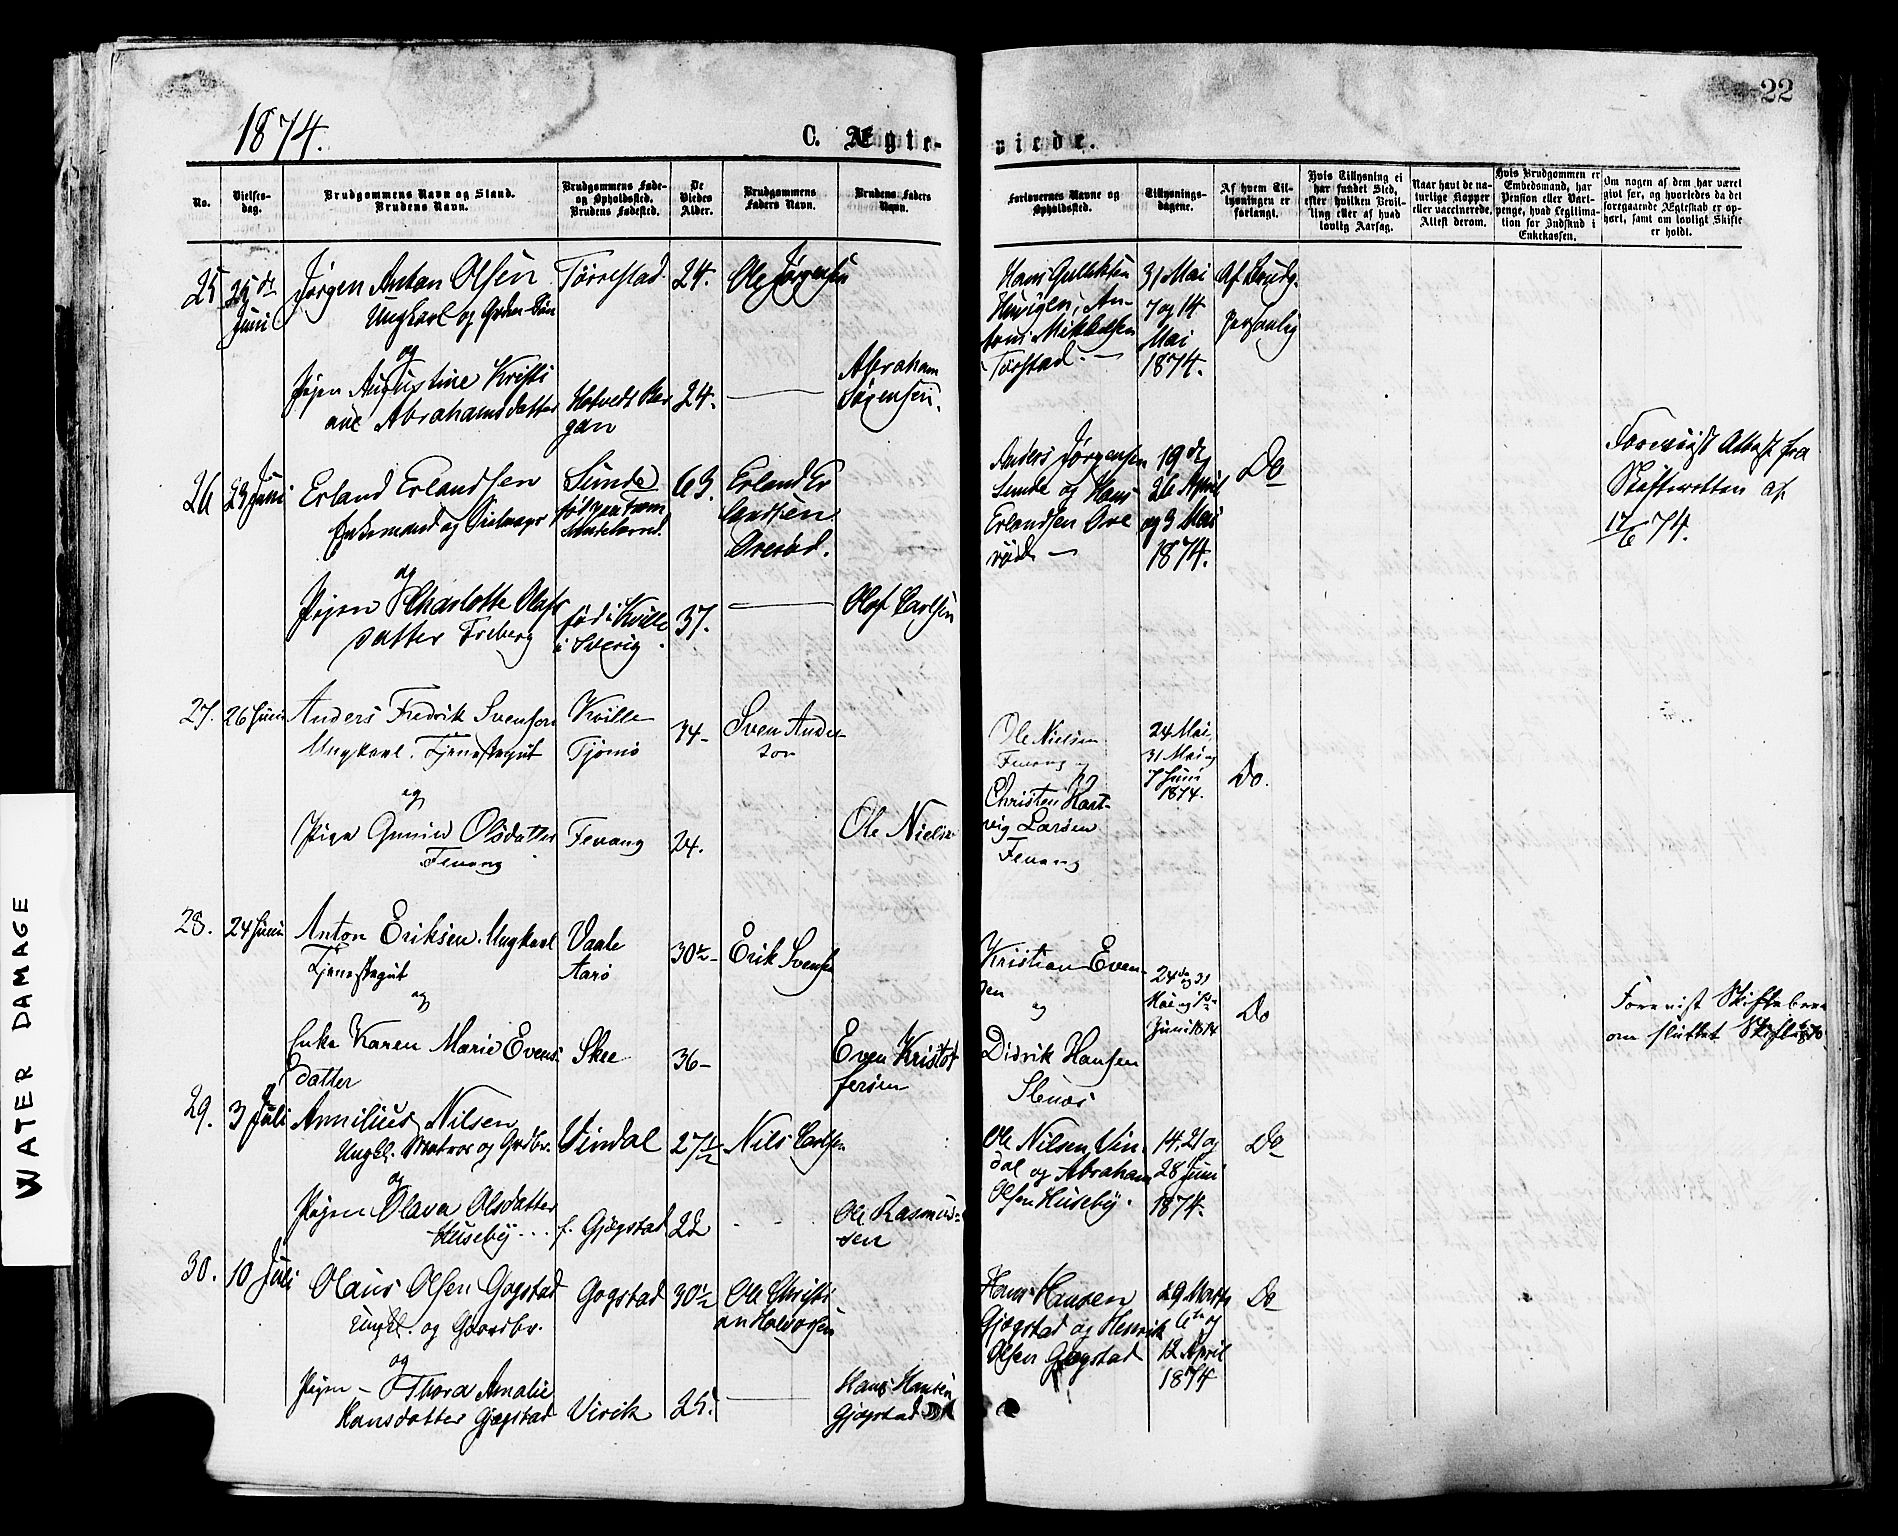 22
1874.
C. Ægte-
viede.
No.
Vielses-
dag.
Brudgommens Navn og Stand.
Brudens Navn.
Brudgommens Føde-
og Opholdssted.
Brudens Fødested.
De
Viedes
Alder.
Brudgommens
Faders Navn.
Brudens Faders
Navn.
Forlovernes Navne og
Opholdssted.
Tillysnings-
dagene.
Af hvem Til-
lysningen er
forlangt.
Hvis Tillysning ei
har fundet Sted,
efter hvilken Bevil-
ling eller af hvad
lovlig Aarsag.
Naar havt de na-
turlige Kopper
eller vaccinerede,
Attest derom.
Hvis Brudgommen er
Embedsmand, har
Pension eller Vart-
penge, hvad Legitima-
tion for Indskud i
Enkekassen.
Om nogen af dem har været
givt før, og hvorledes da det
foregaaende Ægteskab er op-
hørt, samt om lovligt Skifte
er holdt.
25
Juni
Jørgen Anton Olsen
Ungkarl og
Tørrestad
24.
Ole Jørgensen
Hans Gulliksen
An-
ton Mikkelsen
Tørstad.
31 Mai
7 og 14
Mai
1874.
Af Brudg.
personlig
og
Pigen Augustine Kristi
ane Abrahamsdatter
24.
Abraham
Sørensen.
26
23 Juni
Erland Erlandsen
Enkemand og
Sunde
63.
Erland Er
landsen
Anders Jørgensen
Sunde og Hans
Erlandsen
19de
26 April
og 3 Mai
1874.
Do
Forevist Attest fra
Skifteretten af
17/6 74.
og
Pigen Charlotte Olafs
datter Freberg
fød i Kville
i Sverig.
37.
Olof Carlsen
27.
26 Juni
Anders Fredrik Svenson
Ungkarl. Tjenestegut
Kville
Tjømø
34
Sven Ander
son
Ole Nielsen
Fevang og
Christen Hart-
vig Larsen
Fevang
24 Mai,
31 Mai og
7 Juni
1874.
Do.
og
Pige Olsdatter
Fevang
Fevang
24.
Ole Nielsen
28.
24 Juni
Anton Eriksen. Ungkarl
Tjenestegut
Vaale
Aarø
30½
Erik Svensen
Kristian Even-
sen
og
Didrik Hansen
24de og 31
Mai og
Juni 1874
Do
Forevist
om sluttet
og
Enke Karen Marie Evens-
datter
Skee
36
Even Kristof
fersen
29.
3 Juli
Annilius Nilsen
Ungkl. Matros og Grdbr.
Vindal
27½
Nils Carlsen
Ole Nilsen Vin-
dal og Abraham
Olsen Huseby.
14, 21 og
28 Juni
1874.
Do
og
Pigen Olava Olsdatter
Huseby
f. Gjøgstad
22
Ole Rasmus-
sen
30.
10 Juli
Olaus Olsen Gogstad
Ungkl. og Gaardbr.
Gogstad
30½
Ole Christi
an Halvorsen
Hans Hansen
Gjøgstad og Henrik
Olsen Gøgstad
29 Marts
6te og
12 April
1874
Do
og
Pigen Thora Amalie
Hansdatter Gjøgstad
Virik
25.
Hans Hansen
Gjøgstad
WATER DAMAGE